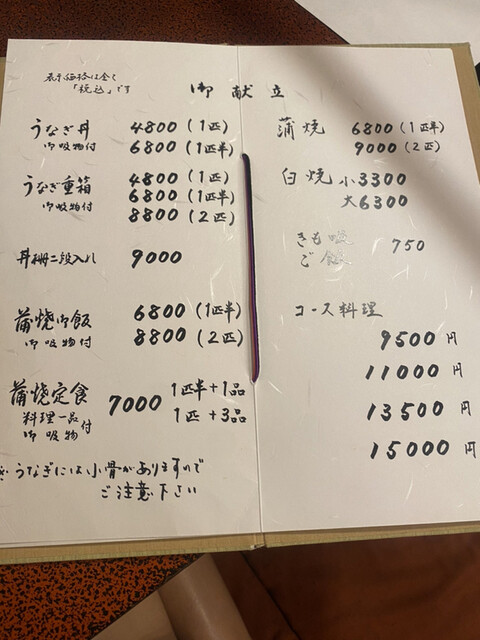 表示価格は全て
「税込」です
御献立
うなぎ丼 4800(1匹)
御吸物付 6800(1匹半)
うなぎ重箱 4800(1匹)
御吸物付 6800(1匹半)
8800(2匹)
丼 二段入れ 9000
蒲焼御飯 6800(1匹半)
御吸物付 8800(2匹)
蒲焼定食 7000 1匹半+1品
料理一品 付 1匹+3品
御吸物
※うなぎには小骨がありますので
ご注意下さい
蒲焼 6800(1匹半)
9000(2匹)
白焼 小3300
大6300
きも吸 750
ご飯
コース料理
9500円
11000円
13500円
15000円